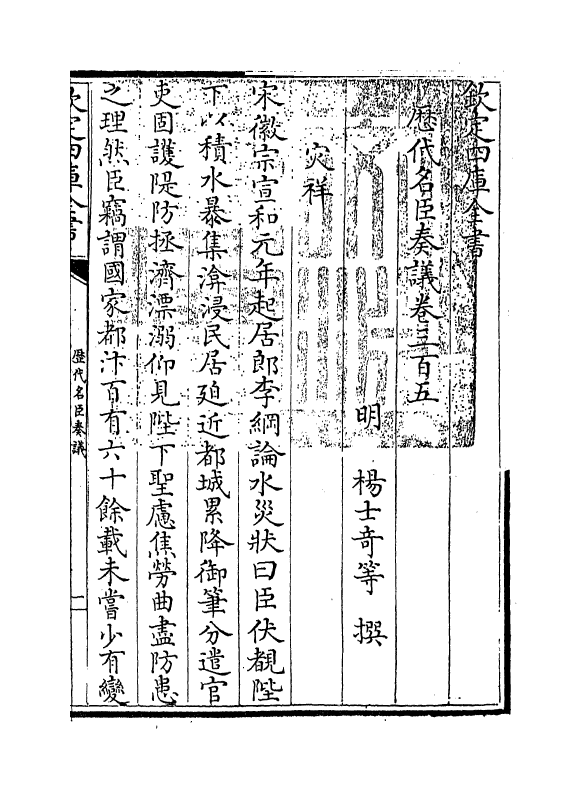 欽定四庫全書
歴代名臣奏議卷三百五
明 楊士竒等 撰
災祥
宋徽宗宣和元年起居郎李綱論水災狀曰臣伏覩陛
下以積水暴集渰浸民居廹近都城累降御筆分遣官
吏固護隄防拯濟漂溺仰見陛下聖慮焦勞曲盡防患
之理然臣竊謂國家都汴百有六十餘載未嘗少有變
欽定四庫全書
歴代名臣奏議
一